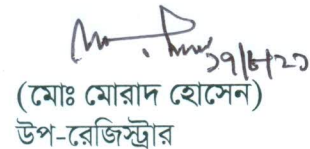 ১৭/৮/২১
(মোঃ মোরাদ হোসেন)
উপ-রেজিস্ট্রার